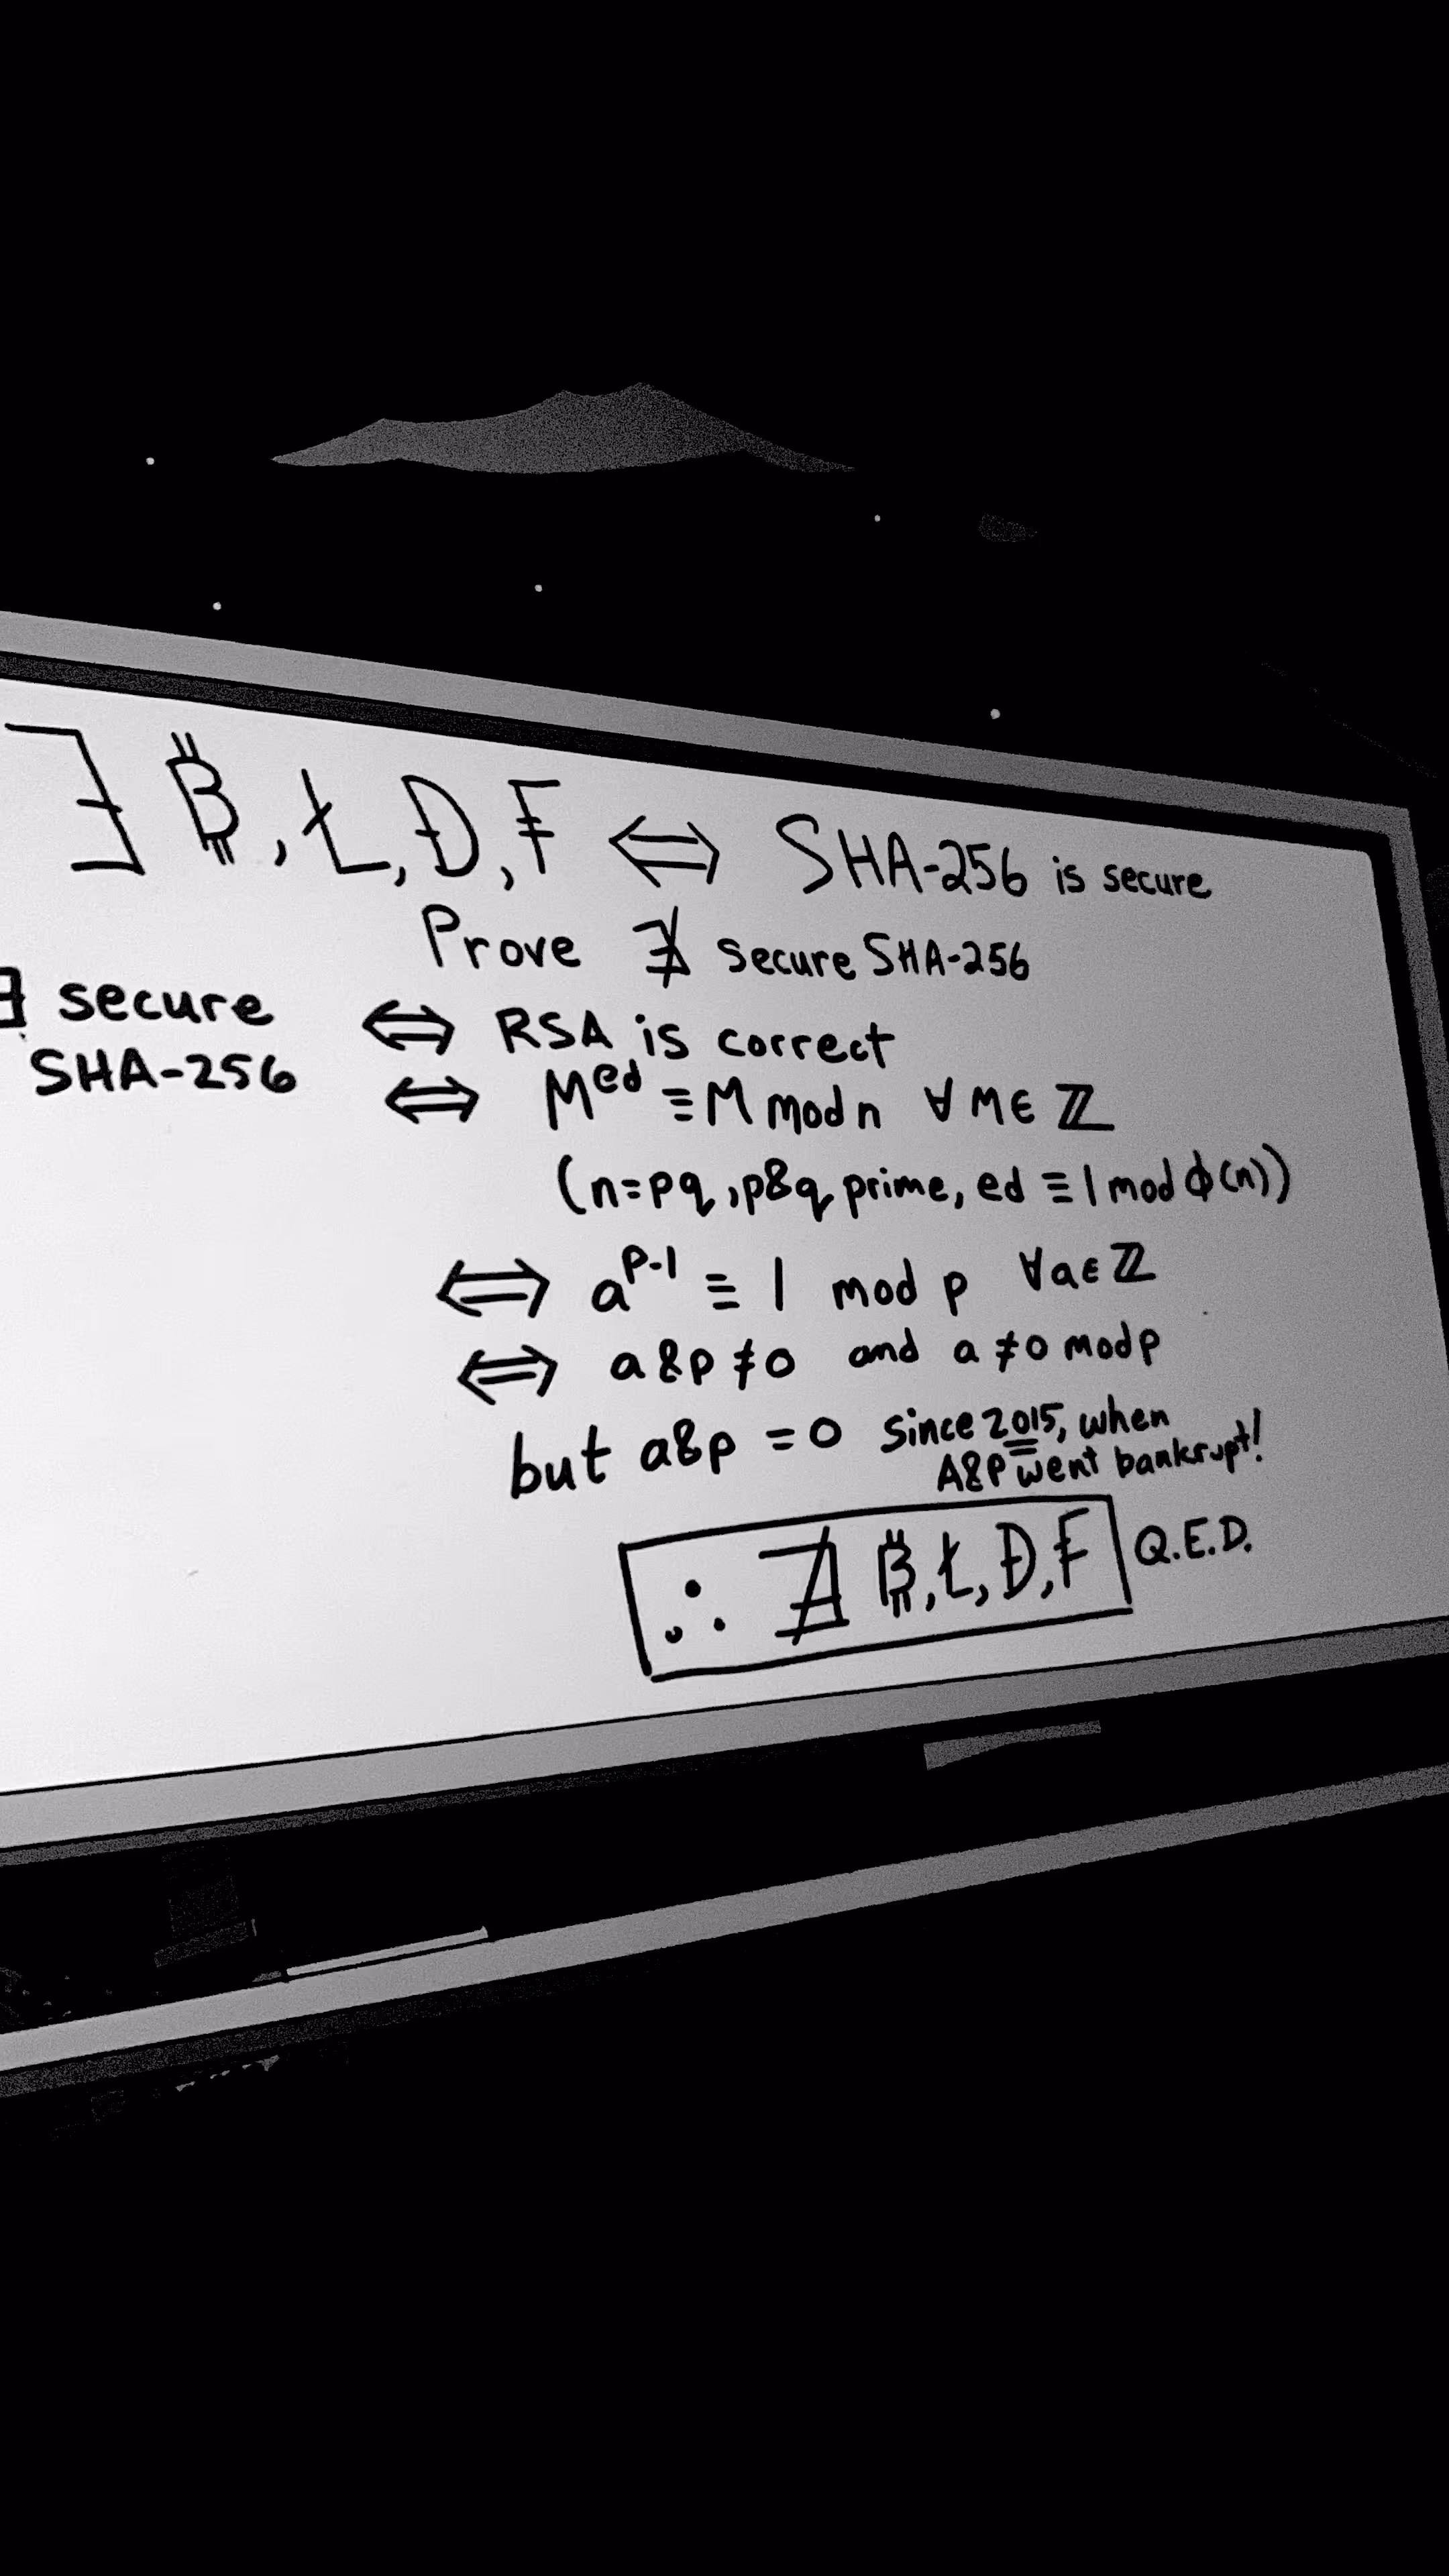 ∃ ₿, Ł, Đ, ₣ ⟺ SHA-256 is secure
Prove ∄ secure SHA-256
∃ secure ⟺ RSA is correct
SHA-256 ⟺ M^ed ≡ M mod n ∀ M ∈ ℤ
(n=pq, p&q prime, ed ≡ 1 mod ϕ(n))
⟺ a^p-1 ≡ 1 mod p ∀a∈ℤ
⟺ a&p ≠ 0 and a ≠ 0 mod p
but a&p = 0 since 2015, when
A&P went bankrupt!
∴ ∄ ₿, Ł, Đ, ₣ Q.E.D.